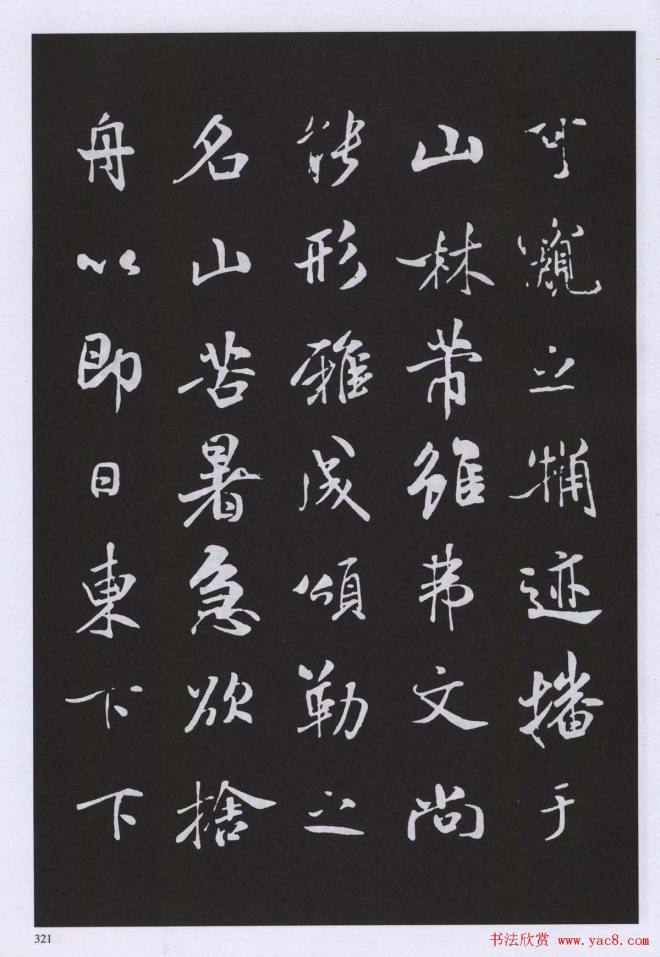 可窺之迹播于
山林芾雖弗文尚
能形雅成頌勒之
名山苦暑急欲捨
舟以即日東下下
321
书法欣赏 www.yac8.com